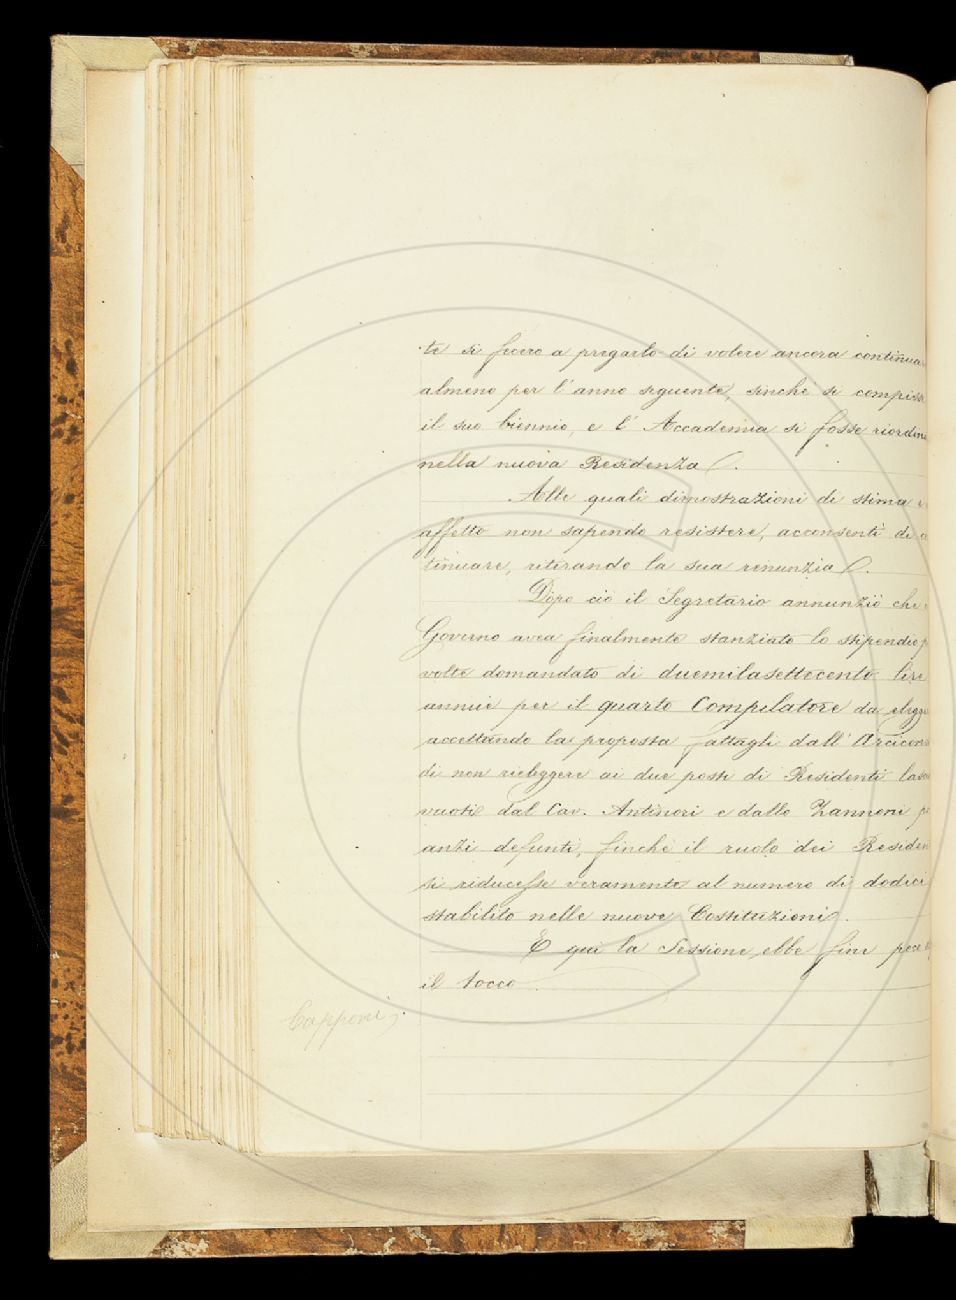 te si fecero a pregarlo di volere ancora continua
almeno per l'anno seguente, sinchè si compisse
il suo biennio, e l'Accademia si fosse riordina
nella nuova Residenza.
Alle quali dimostrazioni di stima e
affetto non sapendo resistere, acconsentì di
tinuare, ritirando la sua renunzia.
Dopo ciò il Segretario annunziò che
Governo avea finalmente stanziato lo stipendio
volte domandato di duemilasettecento lire
annue per il quarto Compilatore da elegge
accettando la proposta fattagli dall'Arcicon
di non rieleggere ai due posti di Residenti
vuoti dal Cav. Antinori e dallo Zannoni
anzi defunti, finchè il ruolo dei Residen
si riducesse veramente al numero di dodici
stabilito nelle nuove Costituzioni.
E qui la Sessione, ebbe fine
il tocco.
Capponi,